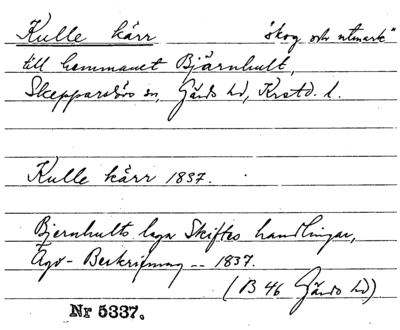 Kulle kärr "skog och utmark"
till hemmanet Bjärnhult,
Skepparslövs sn, Gärds hd, Krstd. l.
Kulle kärr 1837.
Bjernhults laga Skiftes handlingar,
Ägo-Beskrifning -- 1837.
(B 46 Gärds hd)
Nr 5337.